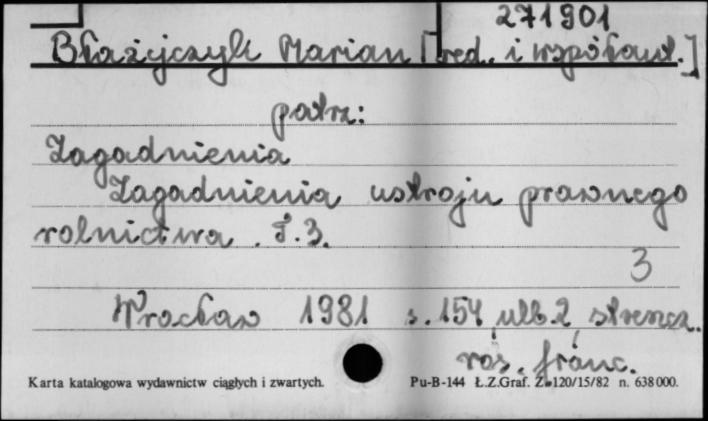 271901
Błażejczyk Marian [red. i współaut.]
patrz:
Zagadnienia
Zagadnienia ustroju prawnego
rolnictwa. T. 3.
3
Wrocław 1981 s. 154, ulb. 2, streszcz.
ros. franc.
Karta katalogowa wydawnictw ciągłych i zwartych. Pu-B-144 Ł.Z.Graf. Z. 120/15/82 n. 638000.